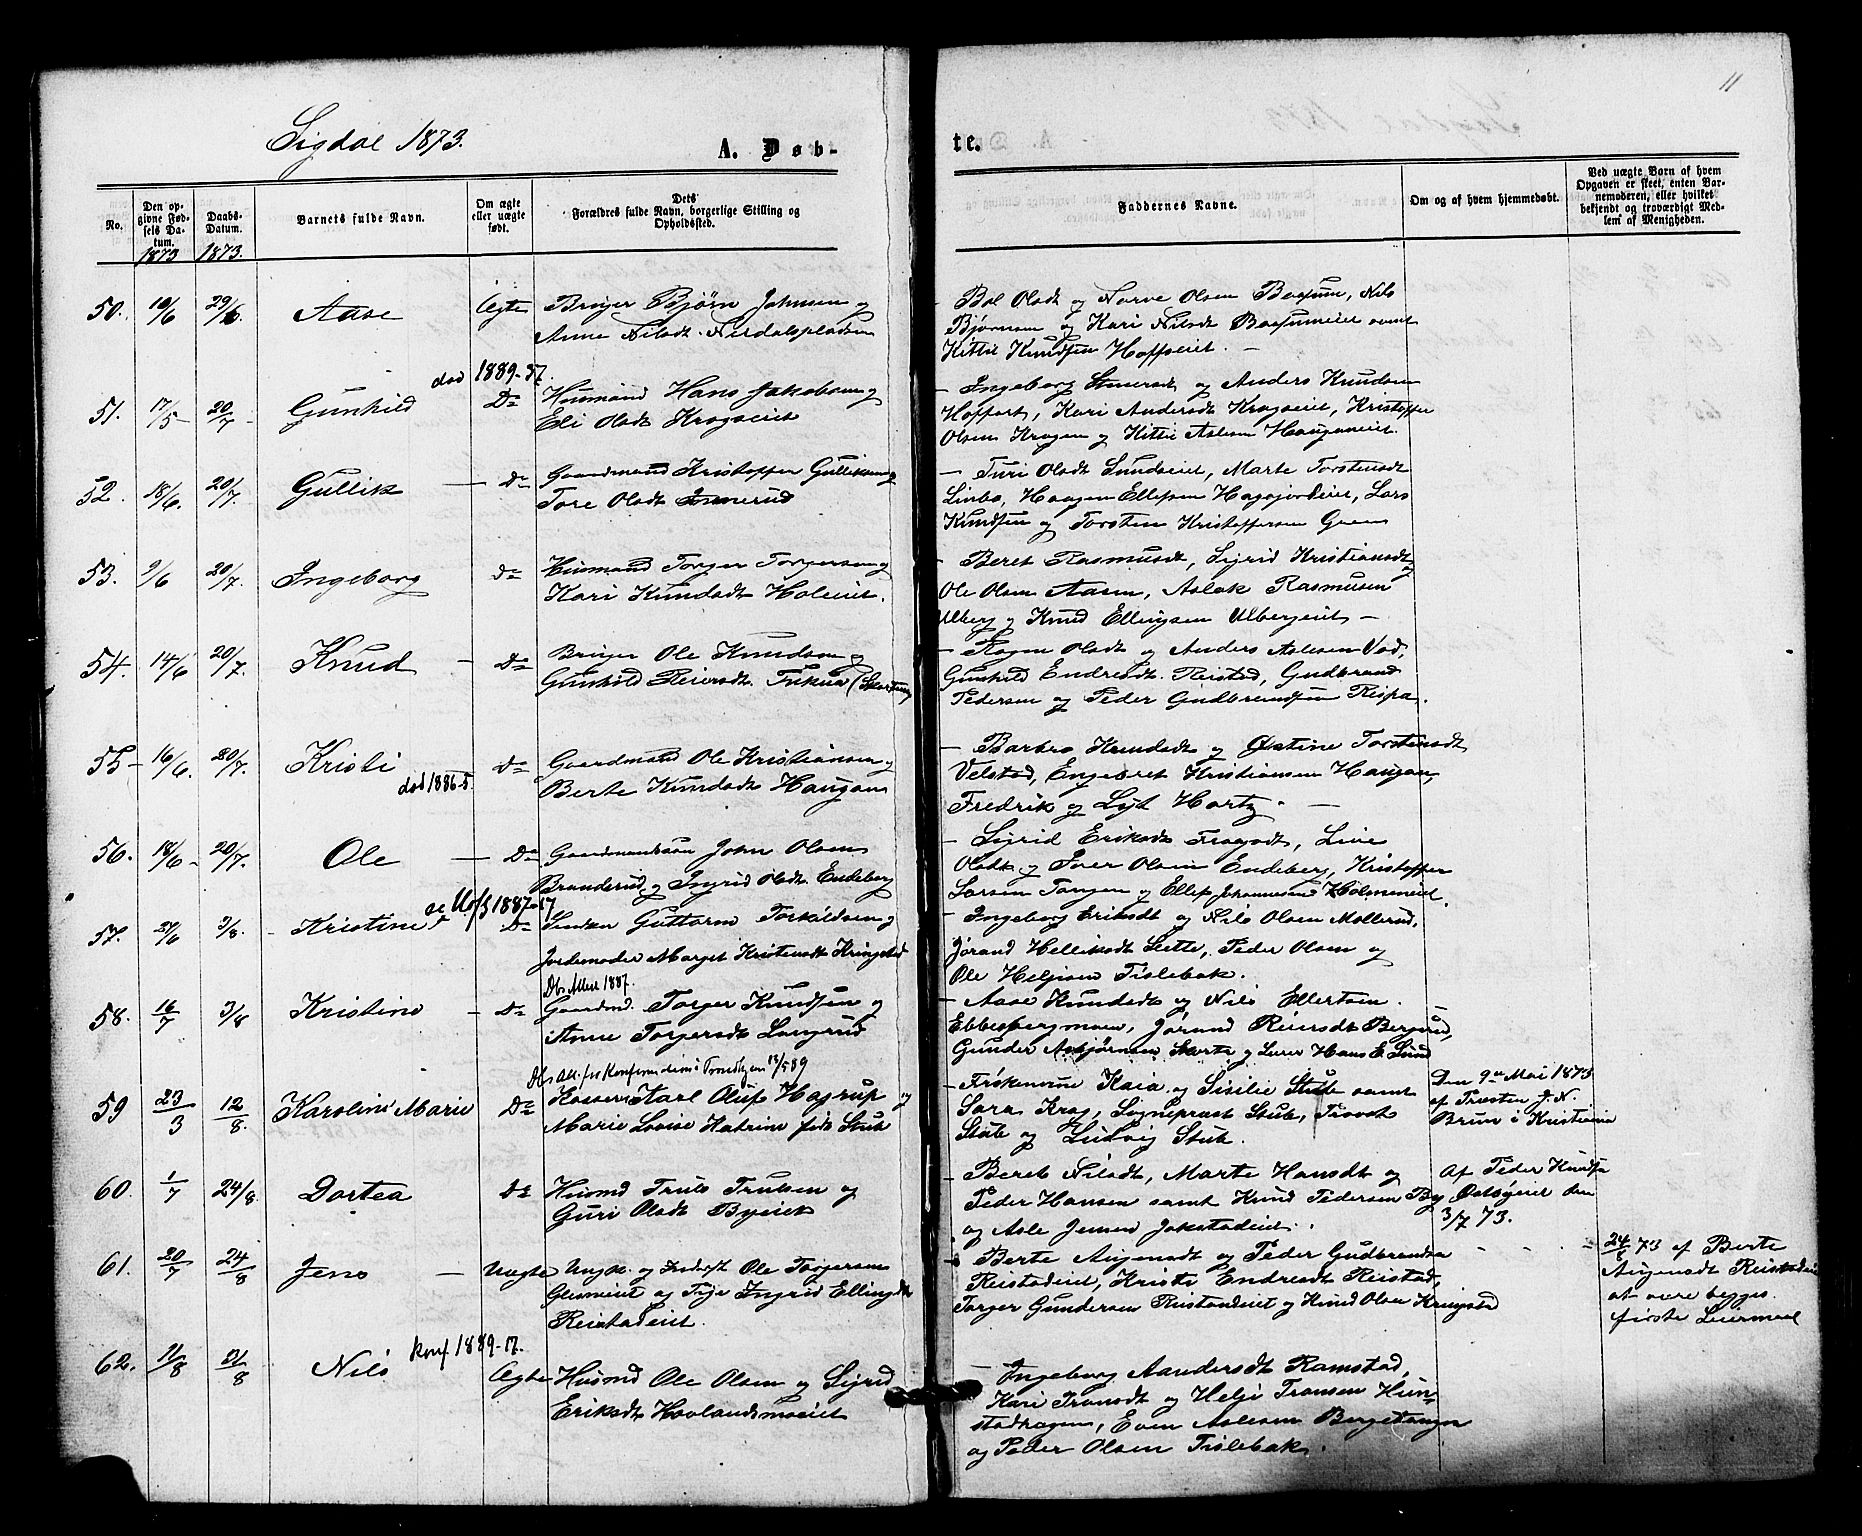 11
Sigdal 1873.
A. Døb-
te.
No.
Den op-
givne Fød-
sels Da-
tum.
1873
Daabs-
Datum.
1873.
Barnets fulde Navn.
Om ægte
eller uægte
født.
Dets
Forældres fulde Navn, borgerlige Stilling og
Opholdssted.
Faddernes Navne.
Om og af hvem hjemmedøbt.
Ved uægte Barn af hvem
Opgaven er skeet, enten Bar-
nemoderen, eller hvilket
bekjendt og troværdigt Med-
lem af Menigheden.
50. 10/6 29/6 Aase Ægte Bruger Bjørn Johnsen og
Anne Nilsdt. Nerdalspladsen
- Bol Olsdt og Narve Olsen Baasum, Nils
Bjørnsen og Kari Nilsdt Baasumeiet samt
Kittil Knudsen Hoffseiet. -
død 1889-57.
51. 17/5 - 20/7 - Gunhild Do Husmand Hans Jakobsen og
Eli Olsdt Kragseiet
- Ingeborg Steensdt og Anders Knudsen
Hoffart, Kari Andersdt Kragseiet, Kristoffer
Olsen Kragen og Kittil Aslesen Haugeneiet.
52. 18/6. 20/7. Gullik - Do Gaardmand Kristoffer Gulliksen og
Tore Olsdt
- Turi Olsdt Sundseiet, Marte Torstensdt
Linbo, Haagen Ellefsen Hagajordeiet, Lars
Knudsen og Torsten Kristoffersen Green
53. 9/6 20/7. Ingeborg Do Husmand Torger Torgersen og
Kari Knudsdt Holeiet.
- Beret Rasmusdt, Sigrid Kristiansdt
og
Ole Olsen Aasen, Aslak Rasmusen
Ulberg og Knud Ellingsen Ulbergeiet -
54. 14/6 20/7. Knud - Do Bruger Ole Knudsen og
Gunhild Reiersdt
- Ragne Olsdt og Anders Aslesen Vad,
Gunhild Endresdt. Reistad, Gudbrand
Pedersen og Peder Gudbrandsen Reipa.
55 - 16/6. 20/7. Kristi Do Gaardmand Ole Kristiansen og
død 1886-5. Berte Knudsdt Haugan
- Barbro Knudsdt og Østine Torstensdt
Velstad, Engebret Kristiansen Haugan,
Fredrik og Lyt Hartz. -
56. 18/6 - 20/7. Ole - Do Gaardmandssøn John Olsen
Branderud og Ingrid Olsdt. Endeberg
- Sigrid Eriksdt Livie
Olsdt og Iver Olsen Endeberg, Kristoffer
Larsen Tangen og Ellef Johannesen Holmeneiet.
1887-
57. 24/6 3/8. - Kristine Do Guttorm Torkildsen og
Jordemoder Marget Kristensdt Kringstad
- Ingeborg Eriksdt og Nils Olsen Mollerud,
Jørand Helliksdt Sætte, Peder Olsen og
Ole Helgesen Tislebak.
Db. Attest 1887.
58. 16/7 3/8 Kristine - Do Gaardmd. Torger Knudsen og
Anne Torgersdt Langerud
- Aase Knudsdt og Nils Ellertsen.
Ebbesbergmoen, Jørand Reiersdt Bergerud,
Gunder Asbjørnsen Skarta og Lærer Hans E. Lund
Db. Att. for Konfirmation i Trondhjem 13/5 89
59 23/3 12/8. Karoline Marie Do Karl Oluf Hagrup og
Marie Lovise Katrine født Stub
- Frøknerne Kaia og Sisilie Stub samt
Sara Krag, Sogneprest Stub, Provst
Stub og Ludvig Stub.
Den 9de Mai 1873
af Presten J. N.
Brun i Kristiania
60. 1/7 24/8 Dortea Do Husmd Truls Trulsen og
Guri Olsdt Byeiet
- Beret Nilsdt, Marte Hansdt og
Peder Hansen samt Knud Pedersen By
og Asle Jensen Jokstadeiet.
Af Peder Knudsen
den
3/7 73.
61. 20/7 24/8 Jens - Uægte Ungk. og Inderst Ole Torgersen
Glesneiet og Pige Ingrid Ellingsdt
Reistadeiet.
- Berte Augensdt og Peder Gudbrandsen
Reistadeiet, Kristi Endresdt Reistad,
Torger Gundersen Reistadeiet og Knud Olsen Kringstad
- - - - 24/8 73 af Berte
Augensdt Reistadeiet
at være begges
første Leiermaal
konf 1889-17.
62. 11/8 31/8 Nils Ægte Husmd Ole Olsen og Sigrid
Eriksdt Hovlandsmoeiet
- Ingeborg Aandersdt Ramstad,
Kari Transdt og Helge Transen Hun-
stadhagen, Even Aslesen Bergetangen
og Peder Olsen Tislebak.